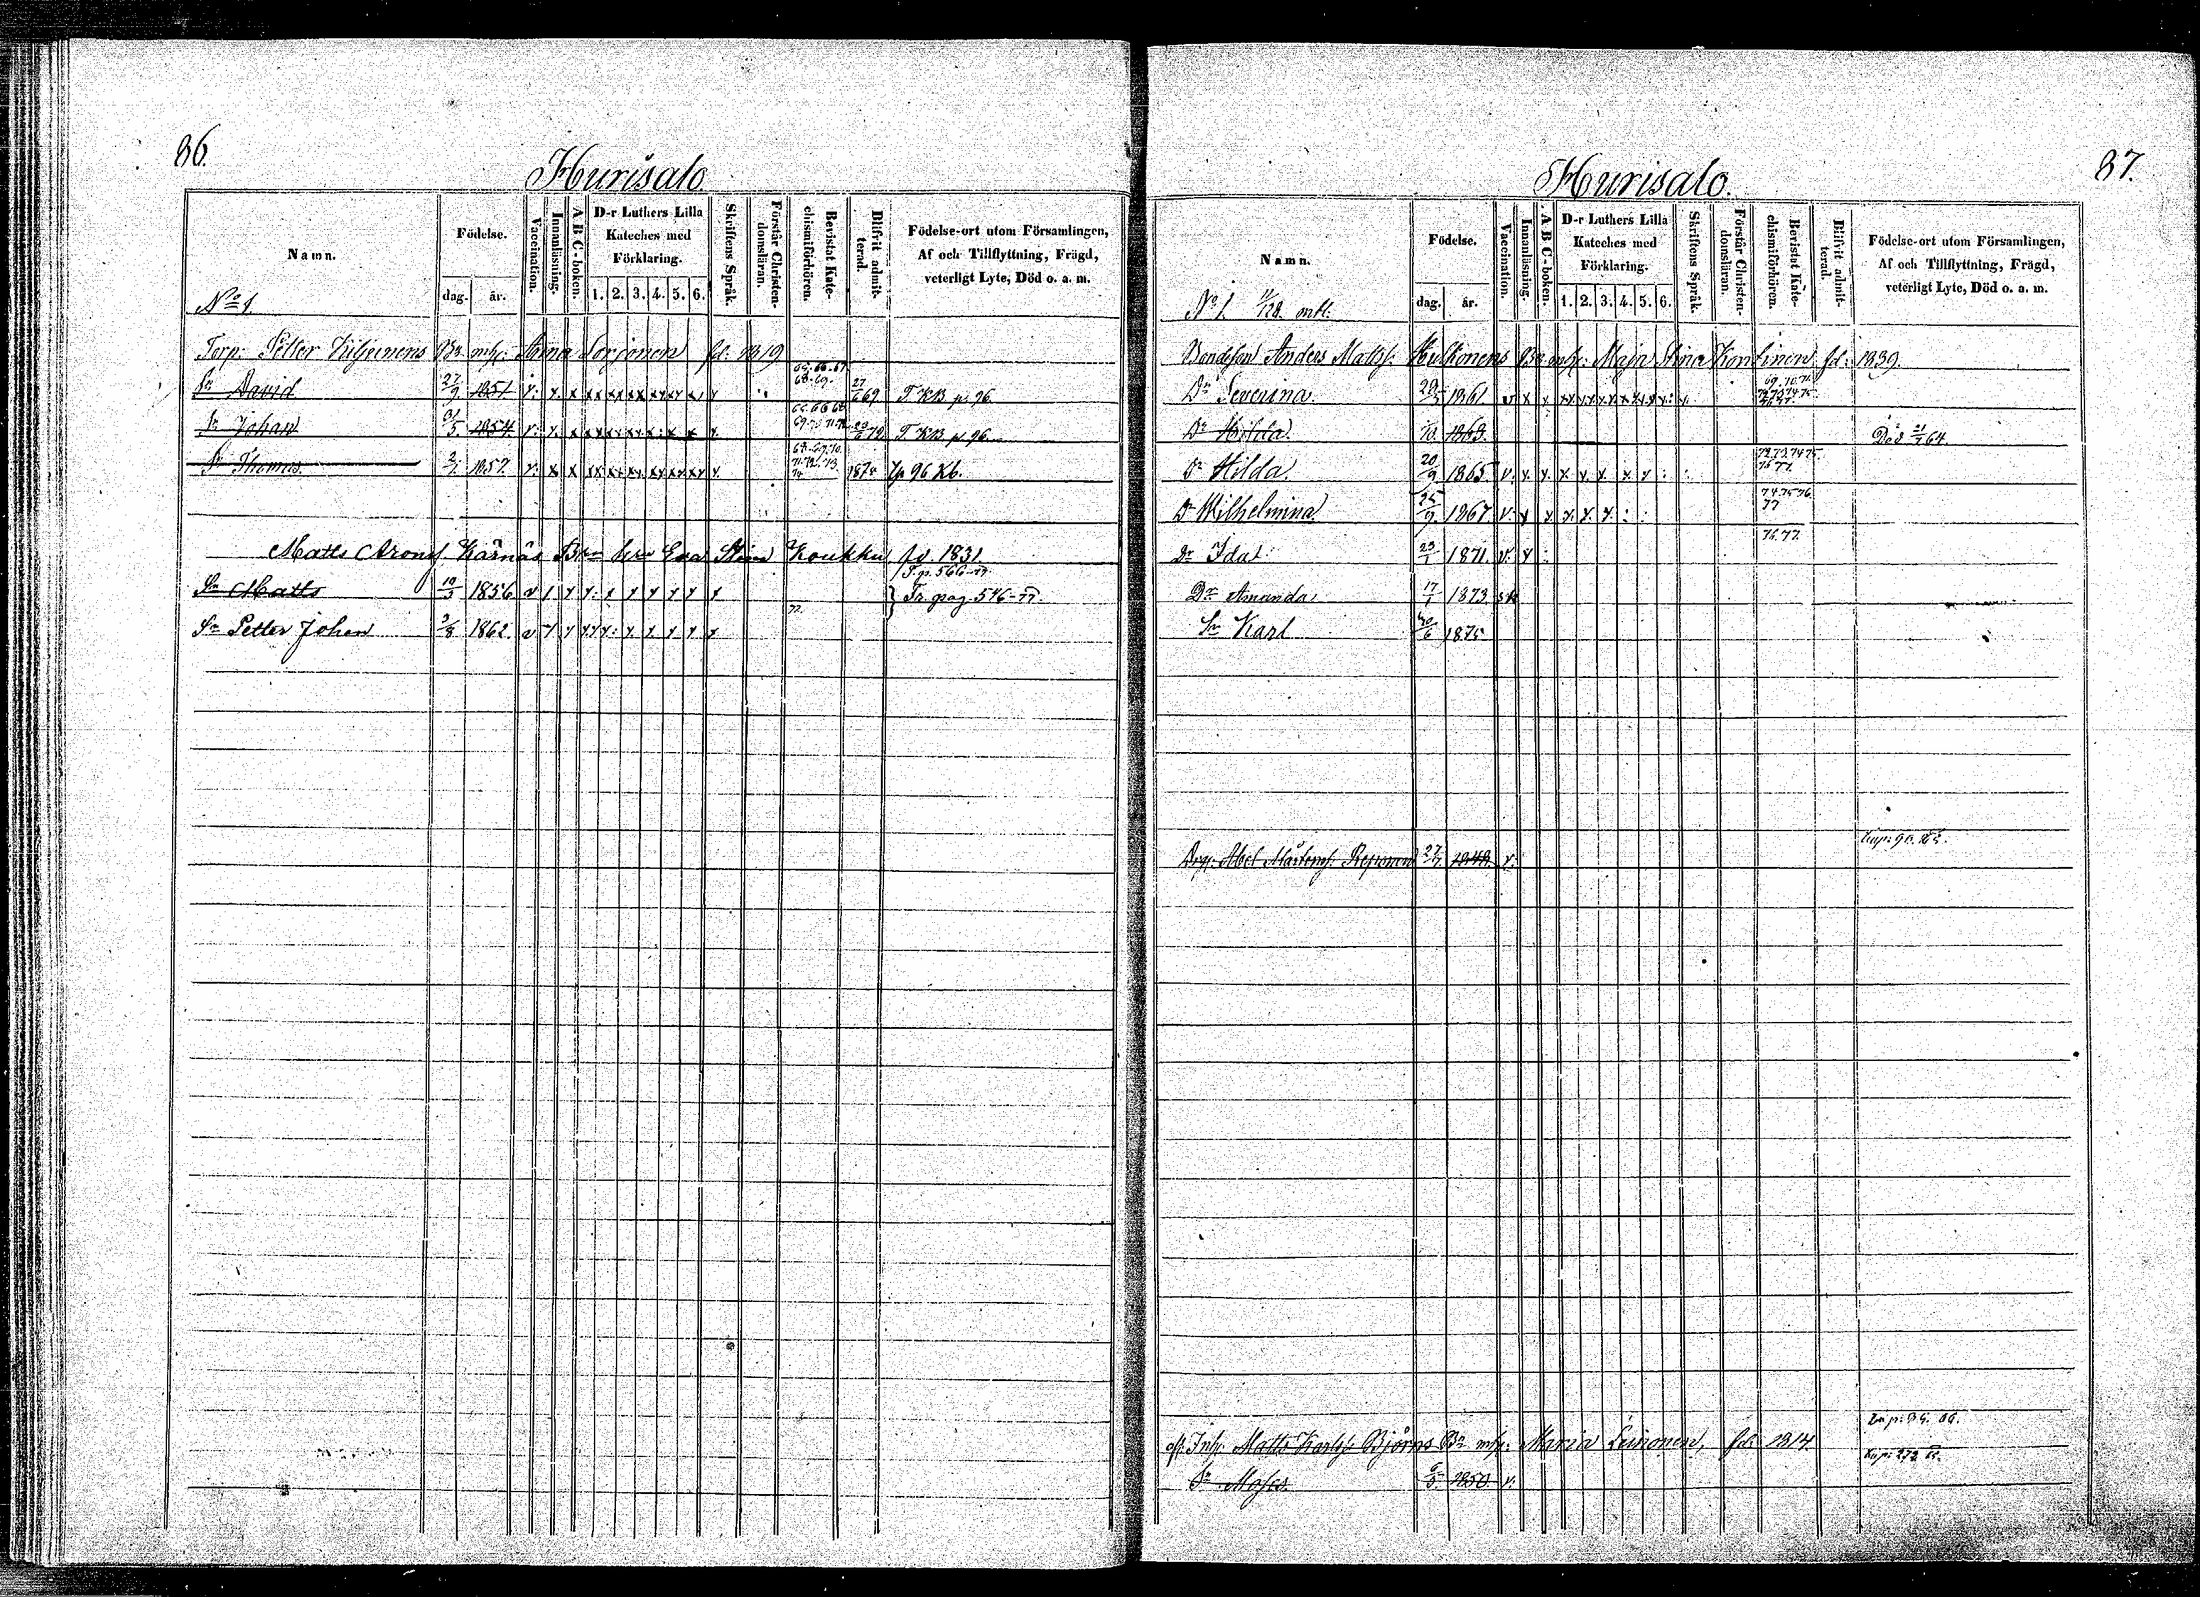 86.
Hurisalo
Namn.
Födelse.
dag. år.
Vaccination.
Innanläsning.
A B C-boken.
D-r Luthers Lilla Kateches med Förklaring.
1. 2. 3. 4. 5. 6.
Skriftens Språk.
Förstår Christendomsläran.
Bevistat Katechismiförhören.
Blifvit admitterad.
Födelse-ort utom Församlingen,
Af och Tillflyttning, Frägd,
veterligt Lyte, Död o. a. m.
No 1.
Torp: Petter Kiljunens Bn mh: Anna Sorjonen fd: 1819
Sn David 27/9 1851 v: x. x xx xx xx x 65.66.67. 68.69. 27/6 69 T KB p 96
Sn Johan 31/5. 1854. v: x. x 69.70.71.72 T KB p 96
Sn Thomas 2/1. 1857. v: x x 68.69.70. 71.72.73. 74 1874 Tp 96 Kb.
Matts Arons Kärnäs Bn hu Eva Stina Koukku fd 1831.
T p. 566-77
Sn Matts 19/3 1856 v Tr. pag. 546-77.
Sn Petter Johan 3/8 1862. v 77.
87.
Hurisalo.
Namn.
Födelse.
dag. år.
Vaccination.
Innanläsning.
A B C-boken.
D-r Luthers Lilla Kateches med Förklaring.
1. 2. 3. 4. 5. 6.
Skriftens Språk.
Förstår Christendomsläran.
Bevistat Katechismförhören.
Blifvit admitterad.
Födelse-ort utom Församlingen,
Af och Tillflyttning, Frägd,
veterligt Lyte, Död o. a. m.
No 1. 11/128. mtl:
Bondeson Anders Matts: Hulkonens Bn mh: Maja Stina Kontinen fd: 1839.
Dr Severina. 28/5 1861 v x x 69.70.71. 72.73.74.75. 76.77.
Dr Hilda. 1863. Död 21/7 64.
Dr Hilda. 20/9 1865. v. x. x. 72.73.74.75. 76.77.
Dr Wilhelmina. 25/9. 1867. v. x x. 74.75.76. 77
Dr Ida. 23/1 1871. v. x 76.77.
Dr Amanda. 17/1 1873.
Sn Karl 30/6 1875
Drg: Abel Mårtens: Reponen 27/7. 1848. v.
Inh: Matts Karls: Björns Bn mh: Maria Leinonen, fd: 1814.
Sn Moses. 6/5 1850. v.